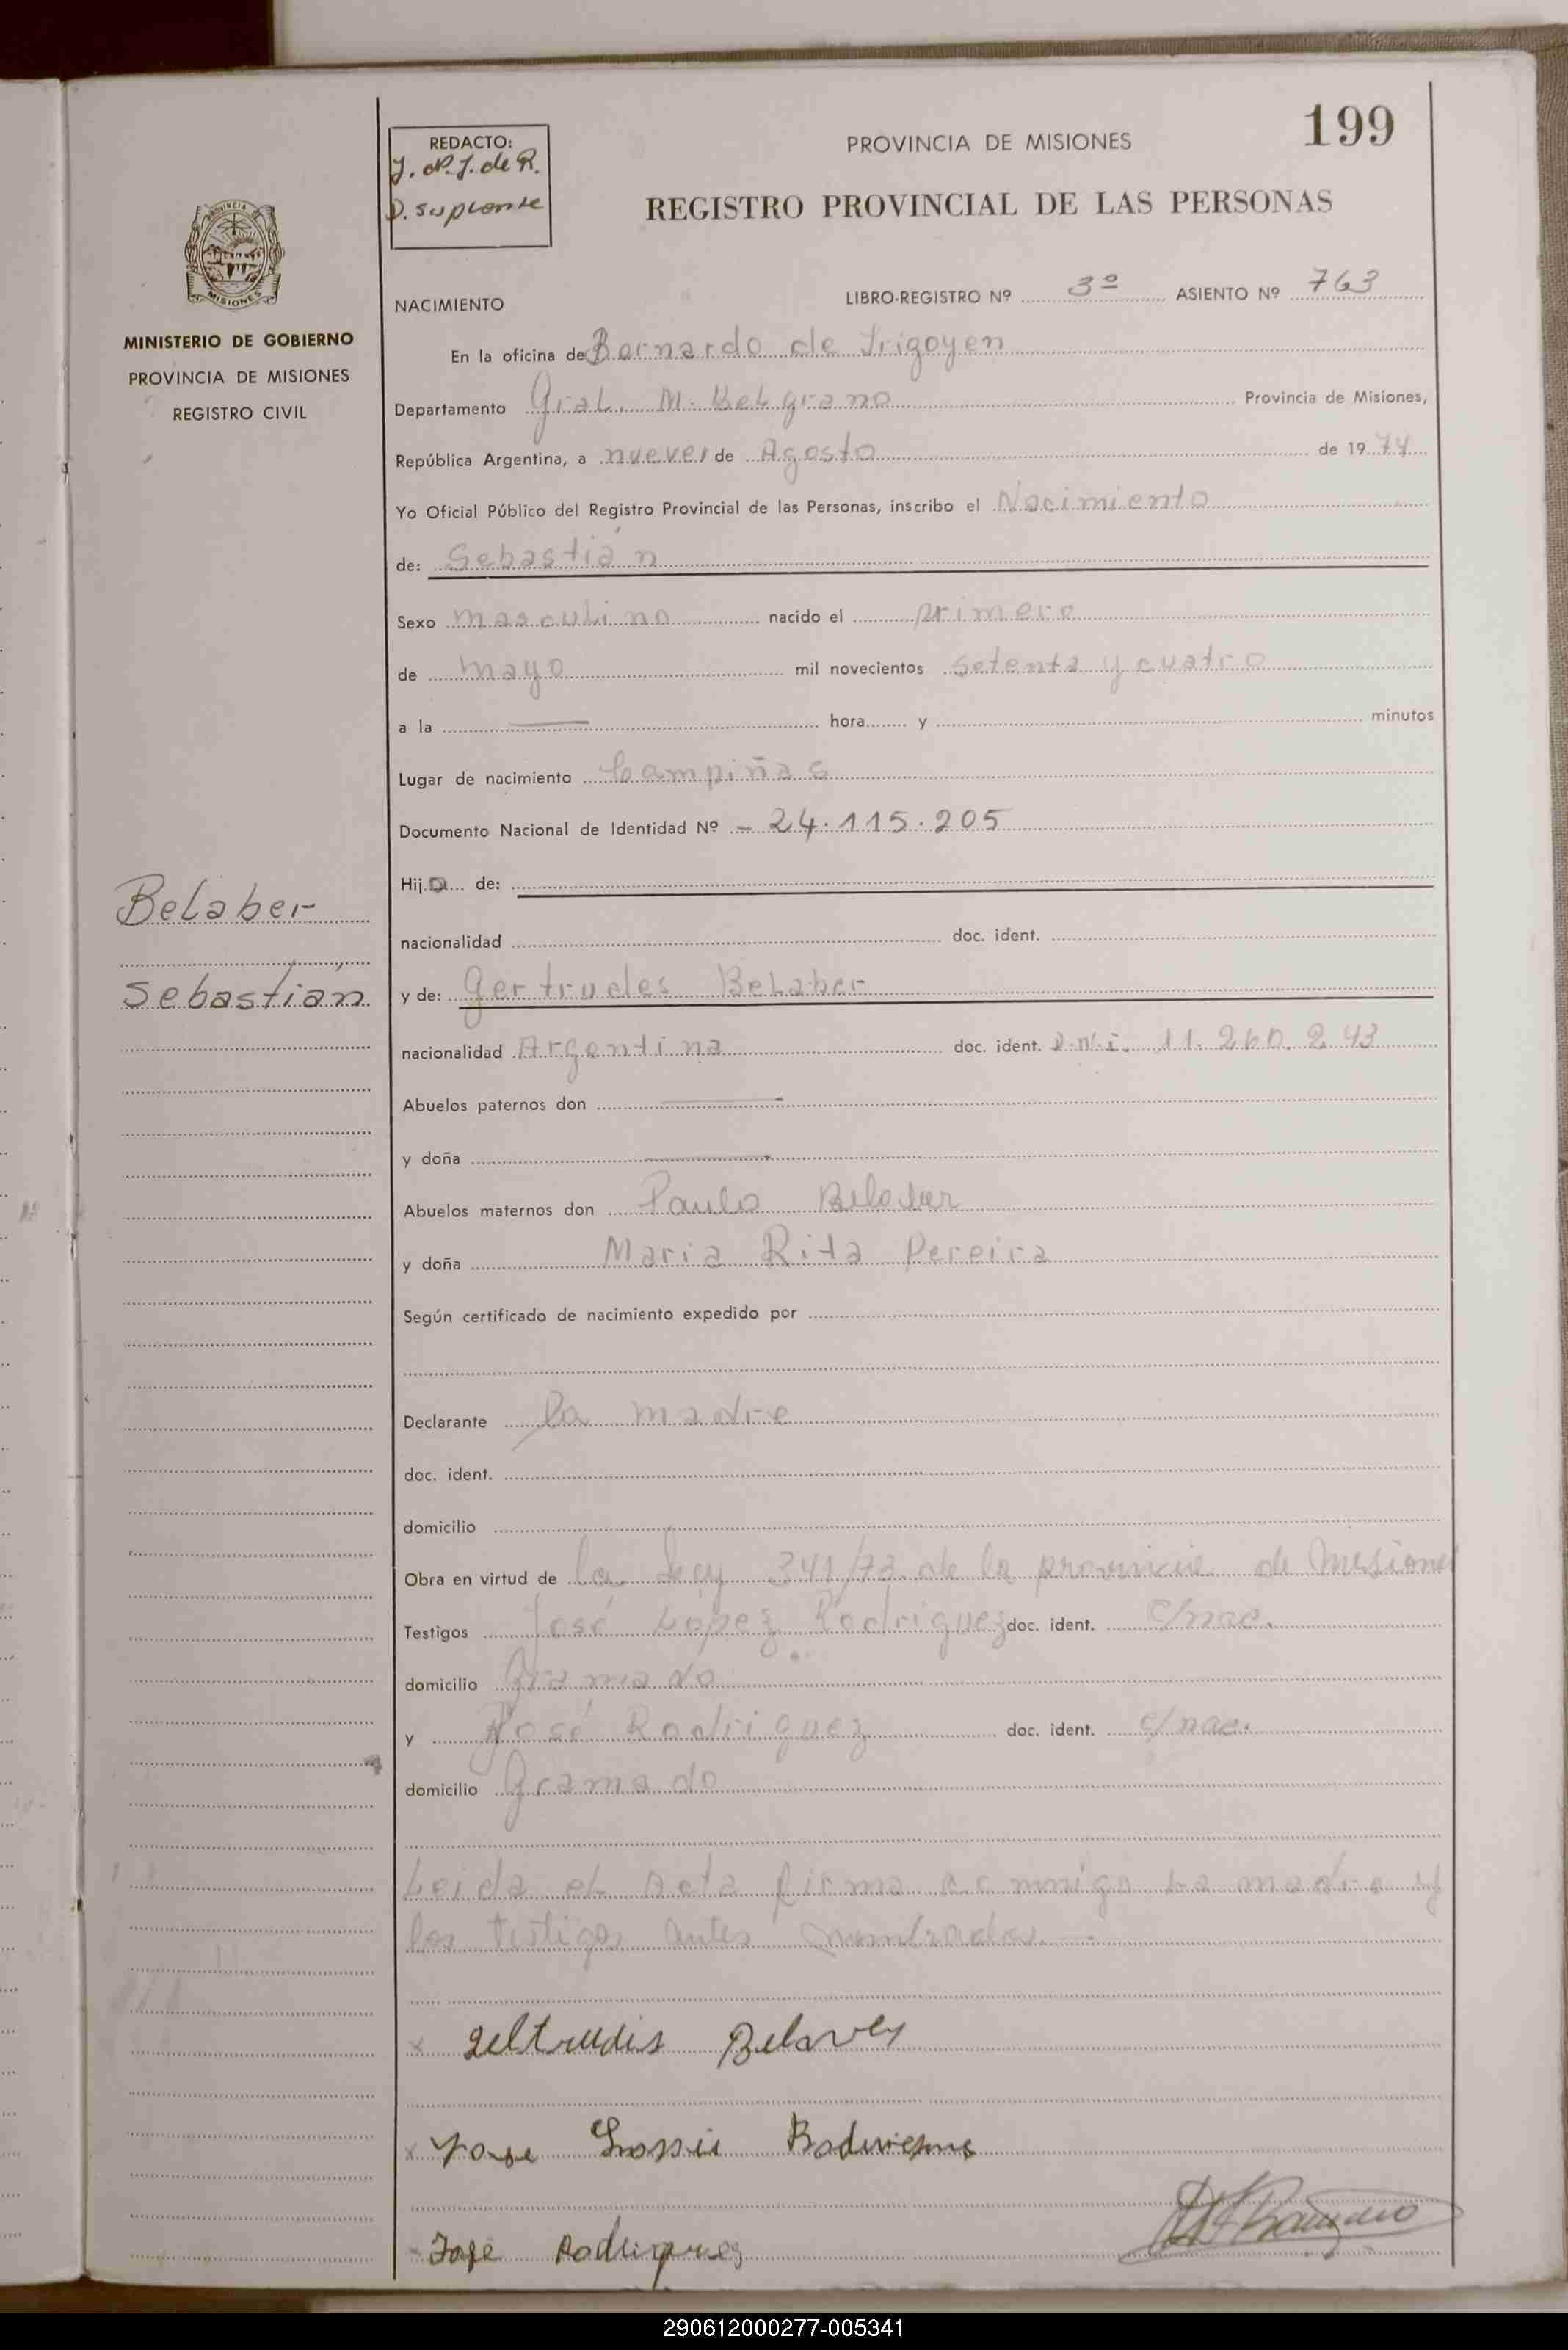 199
REDACTO:
J. de R.
D. suplente
PROVINCIA DE MISIONES
REGISTRO PROVINCIAL DE LAS PERSONAS
PROVINCIA DE
MISIONES
MINISTERIO DE GOBIERNO
PROVINCIA DE MISIONES
REGISTRO CIVIL
Belaber
Sebastián
NACIMIENTO
LIBRO-REGISTRO Nº 3º ASIENTO Nº 763
En la oficina de Bernardo de Irigoyen
Departamento Gral. M. Belgrano Provincia de Misiones,
República Argentina, a nueve de Agosto de 1974
Yo Oficial Público del Registro Provincial de las Personas, inscribo el Nacimiento
de: Sebastián
Sexo masculino nacido el primero
de mayo mil novecientos setenta y cuatro
a la — hora y minutos
Lugar de nacimiento Campiñas
Documento Nacional de Identidad Nº - 24.115.205
Hijo de:
nacionalidad doc. ident.
y de: Gertrudes Belaber
nacionalidad Argentina doc. ident. D.N.I. 11.260.243
Abuelos paternos don —
y doña —
Abuelos maternos don Paulo Belaber
y doña Maria Rita Pereira
Según certificado de nacimiento expedido por
Declarante La madre
doc. ident.
domicilio
Obra en virtud de la Ley 341/73 de la provincia de Misiones
Testigos José López Rodriguez doc. ident. c/nac.
domicilio Gramado
y José Rodriguez doc. ident. c/nac.
domicilio Gramado
Leida el Acta firma conmigo la madre y
los testigos antes nombrados.-
x Geltrudis Belaver
x Jose
Jose Rodriguez
290612000277-005341